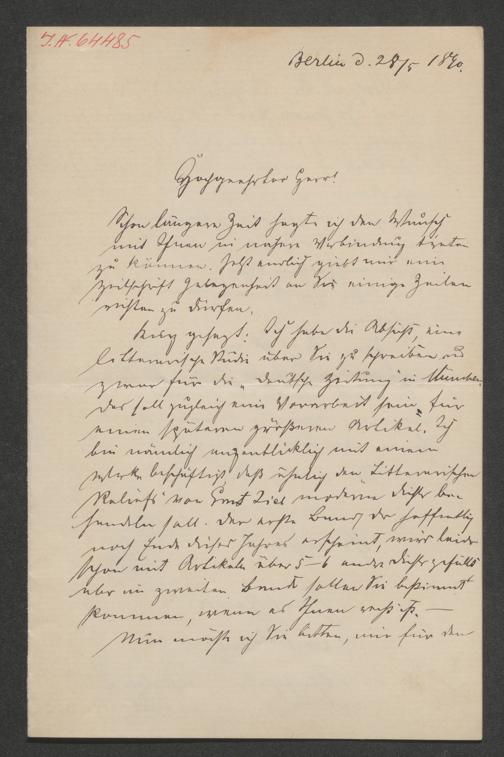 J.N. 64485
Berlin d. 28/5 1890.
Hochgeehrter Herr!
Schon längere Zeit hegte ich den Wunsch
mit Ihnen in nähere Verbindung treten
zu können. Jetzt endlich giebt mir eine
Zeitschrift Gelegenheit an Sie einige Zeilen
richten zu dürfen.
Kurz gesagt: Ich habe die Absicht, eine
litterarische Studie über Sie zu schreiben u.
zwar für die „Deutsche Zeitung" in München.
Das soll zugleich eine Vorarbeit sein für
einen späteren größeren Artikel. Ich
bin nämlich augenblicklich mit einem
Werke beschäftigt, daß ähnlich den „Litterarischen
Reliefs" von Ernst Ziel moderne Dichter be-
handeln soll. Der erste Band, der hoffentlich
noch Ende dieses Jahres erscheint, wird leider
schon mit Artikeln über 5-6 andre Dichter gefüllt
aber im zweiten Bande sollen Sie bestimmt
kommen, wenn es Ihnen recht ist. —
Nun möchte ich Sie bitten, mir für den